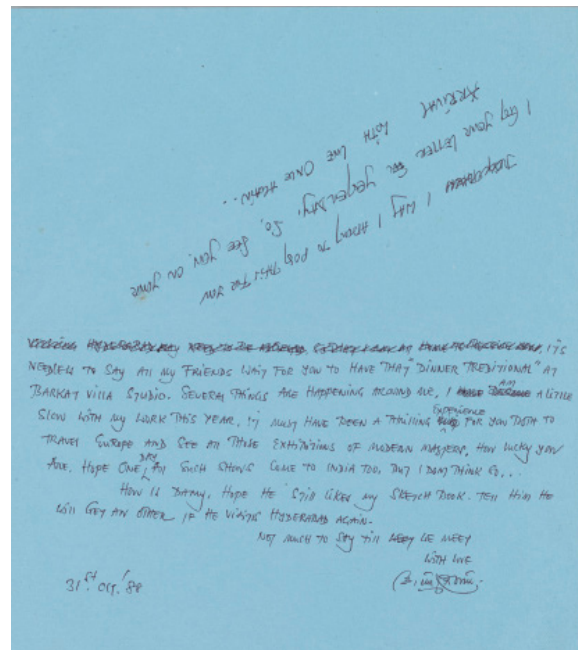 I WAS ABOUT TO POST THIS FOR YOU
I GOT YOUR LETTER YESTERDAY, SO, SEE YOU, ON YOUR
ARRIVAL WITH LOVE ONCE AGAIN..
ITS
NEEDLESS TO SAY ALL MY FRIENDS WAIT FOR YOU TO HAVE THAT "DINNER TREDITIONAL" AT
BARKAT VILLA STUDIO. SEVERAL THINGS ARE HAPPENING AROUND ME, I AM A LITTLE
SLOW WITH MY WORK THIS YEAR. IT MUST HAVE BEEN A THRILLING EXPERIENCE FOR YOU BOTH TO
TRAVEL EUROPE AND SEE ALL THOSE EXHIBITIONS OF MODERN MASTERS, HOW LUCKY YOU
ARE. HOPE ONE DAY ALL SUCH SHOWS COME TO INDIA TOO, BUT I DON'T THINK SO...
HOW IS , HOPE HE STILL LIKES MY SKETCH BOOK. TELL HIM HE
WILL GET AN OTHER, IF HE VISITS HYDERABAD AGAIN.
NOT MUCH TO SAY TILL WE MEET
WITH LOVE
31st. OCT.' 88